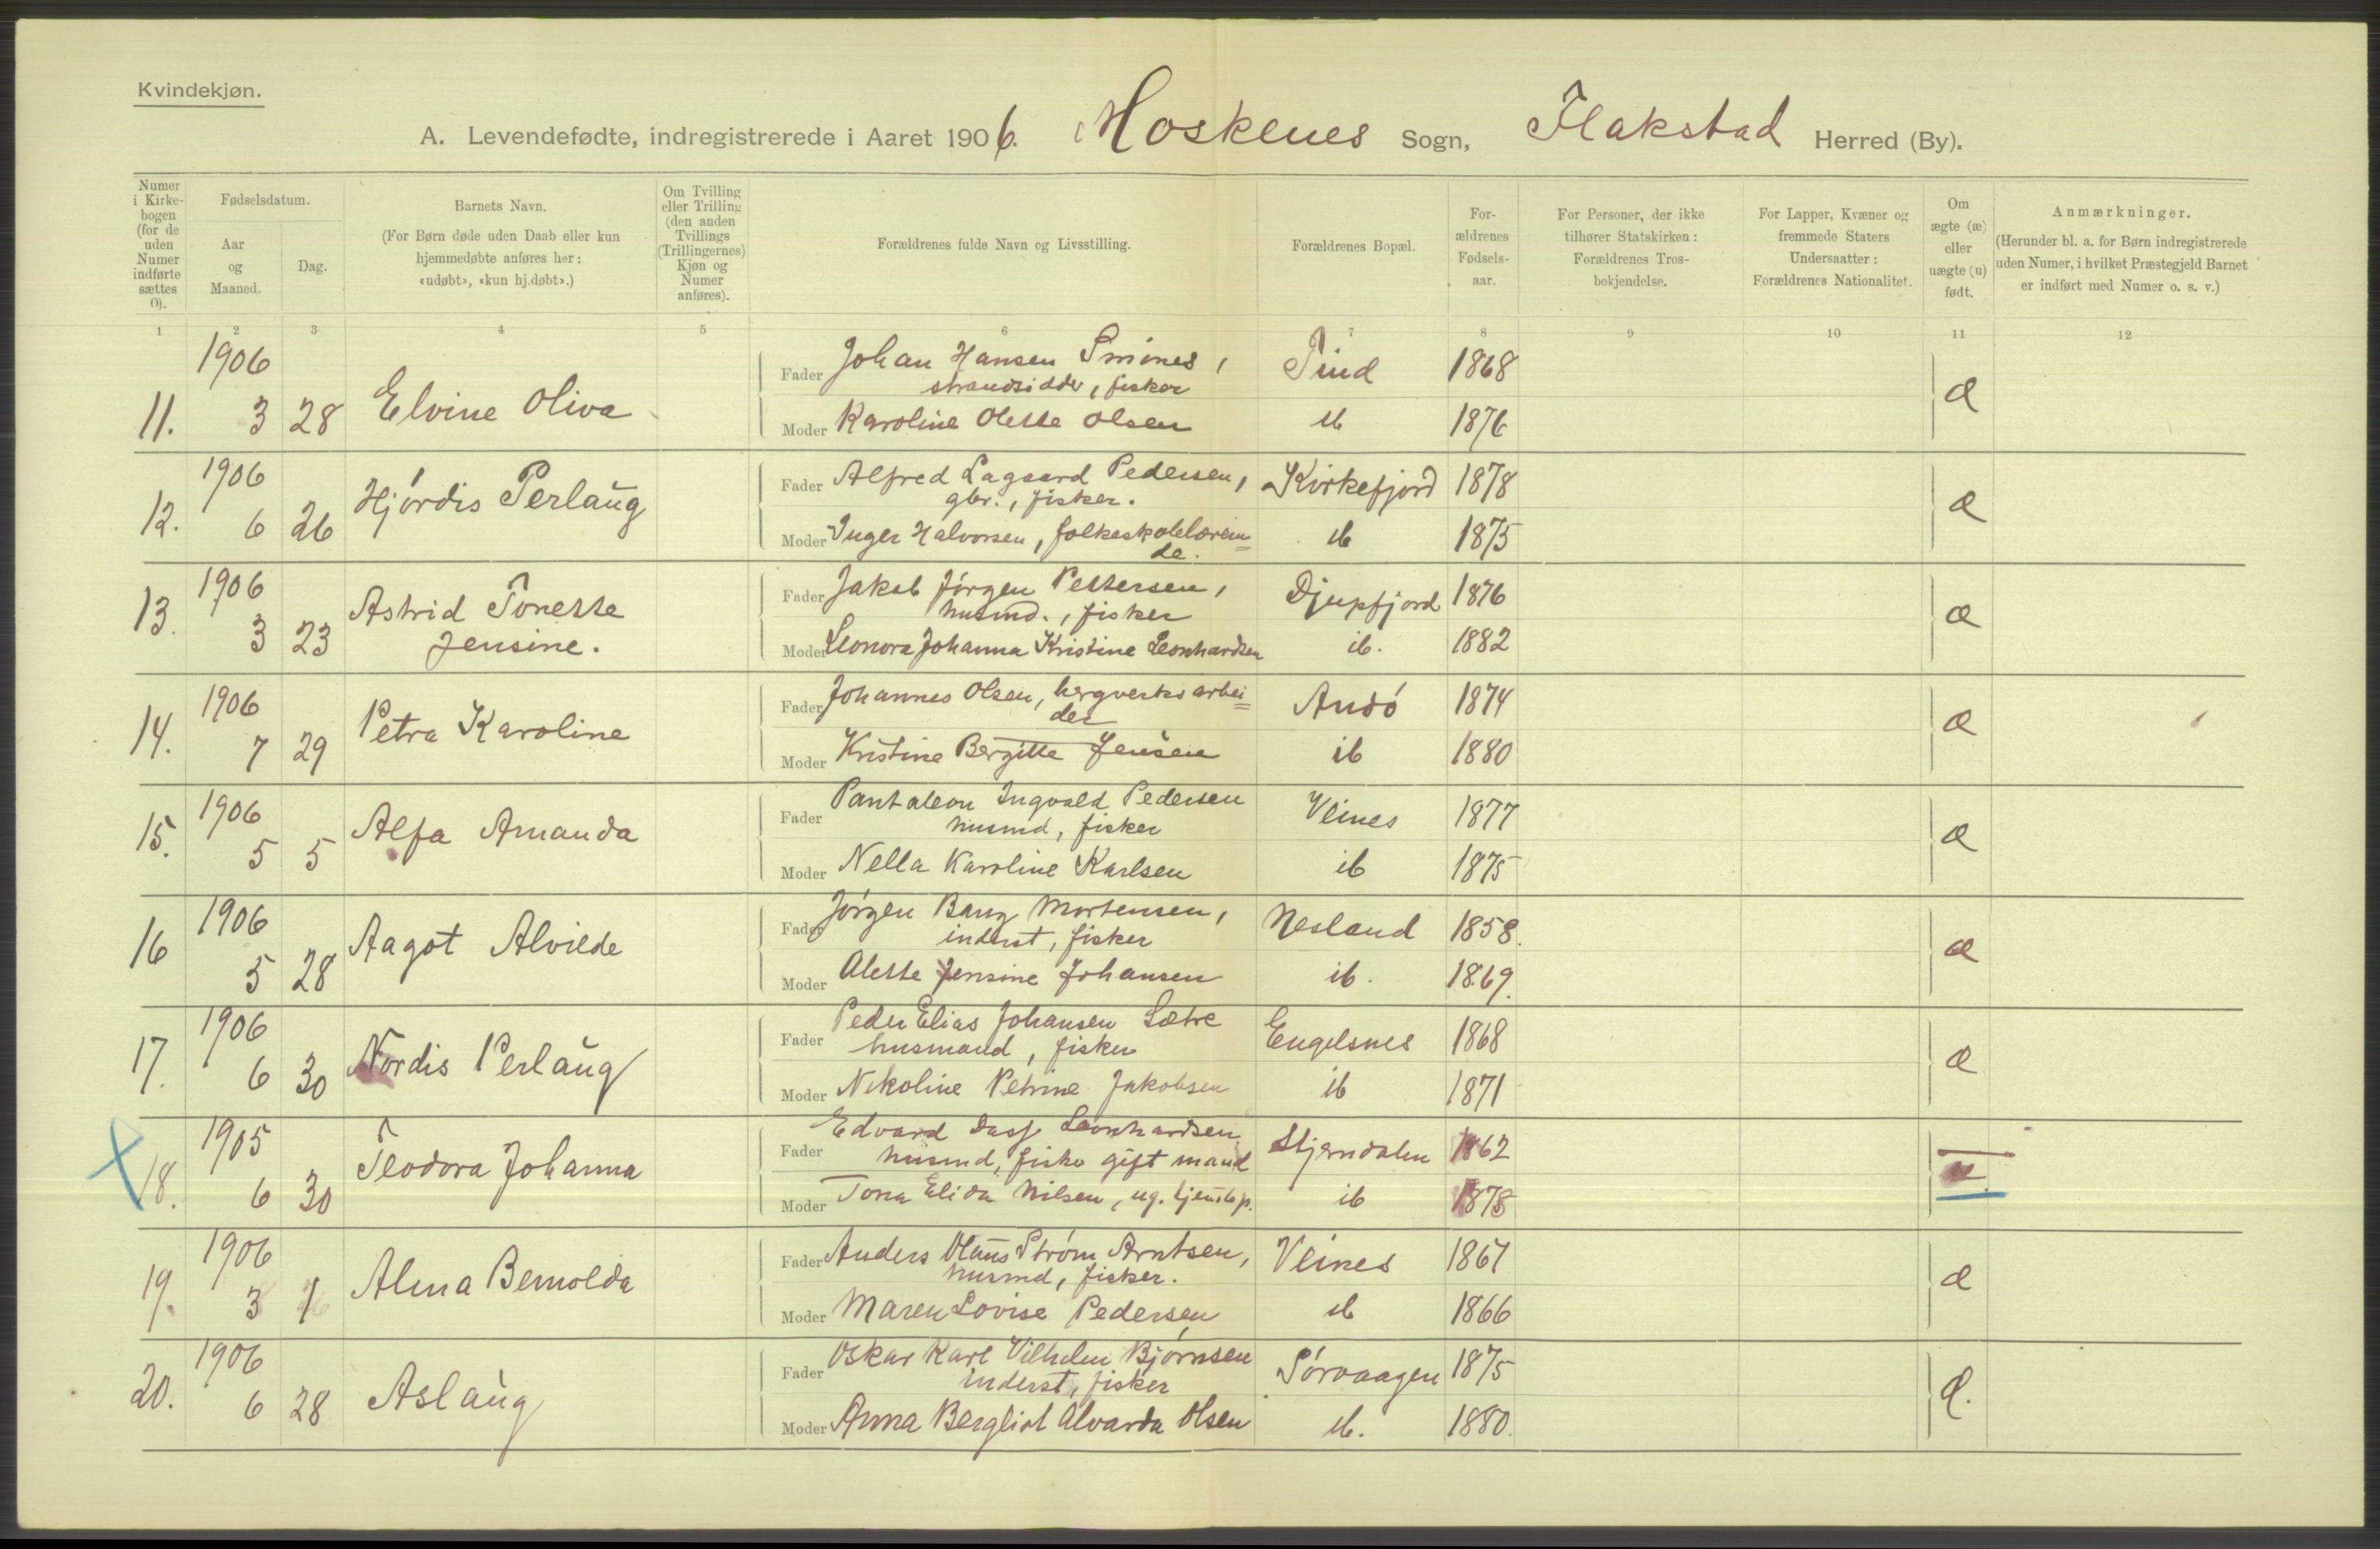 Kvindekjøn.
A. Levendefødte, indregistrerede i Aaret 1906. Moskenes Sogn, Flakstad Herred (By).
Numer i Kirkebogen (for de uden Numer indførte sættes 0).
Fødselsdatum.
Aar og Maaned.
Dag.
Barnets Navn.
(For Børn døde uden Daab eller kun hjemmedøbte anføres her: «udøbt», «kun hj.døbt».)
Om Tvilling eller Trilling (den anden Tvillings (Trillingernes) Kjøn og Numer anføres).
Forældrenes fulde Navn og Livsstilling.
Forældrenes Bopæl.
Forældrenes Fødselsaar.
For Personer, der ikke tilhører Statskirken: Forældrenes Trosbekjendelse.
For Lapper, Kvæner og fremmede Staters Undersaatter: Forældrenes Nationalitet.
Om ægte (æ) eller uægte (u) født.
Anmærkninger.
(Herunder bl. a. for Børn indregistrerede uden Numer, i hvilket Præstegjeld Barnet er indført med Numer o. s. v.)
1 2 3 4 5 6 7 8 9 10 11 12
11. 1906 3 28 Elvine Oliva
Fader Johan Hansen Smines, Tind 1868 æ
strandsidder, fisker
Moder Karoline Olette Olsen ib 1876
12. 1906 6 26 Hjórdis Perlaug
Fader Alfred Lagaard Pedersen, Kirkefjord 1878 æ
gbr., fisker.
Moder Inger Halvorsen, folkeskolelærerin= ib 1875
de.
13. 1906 3 23 Astrid Tonette Jensine.
Fader Jakob Jórgen Pettersen, Djupfjord 1876 æ
husmd., fisker
Moder Leonora Johanna Kristine Leonhardsen ib. 1882
14. 1906 7 29 Petra Karoline
Fader Johannes Olsen, bergverksarbei= Andó 1874 æ
der
Moder Kristine Bergitte Jensen ib 1880
15. 1906 5 5 Alfa Amanda
Fader Pantaleon Ingvald Pedersen Veines 1877 æ
husmd, fisker
Moder Nella Karoline Karlsen ib 1875
16 1906 5 28 Aagot Alvilde
Fader Jórgen Bang Mortensen, Nesland 1858. æ
inderst, fisker
Moder Alette Jensine Johansen ib. 1869.
17. 1906 6 30 Nordis Perlaug
Fader Peder Elias Johansen Sætre Engelsnes 1868 æ
husmand, fisker
Moder Nikoline Petrine Jakobsen ib 1871
18. 1905 6 30 Teodora Johanna
Fader Edvard Dass Leonhardsen Stjerndalen 1862 u.
husmd, fisker gift mand
Moder Tona Elida Nilsen, ug. tjenstep. ib 1878
19. 1906 3 1 Alma Bernolda
Fader Anders Olaus Strøm Arntsen, Veines 1867 æ
husmd, fisker.
Moder Maren Lovise Pedersen ib 1866
20. 1906 6 28 Aslaug
Fader Oskar Karl Vilhelm Bjórnsen Sórvaagen 1875 æ.
inderst, fisker
Moder Anna Bergliot Alvarda Olsen ib. 1880.